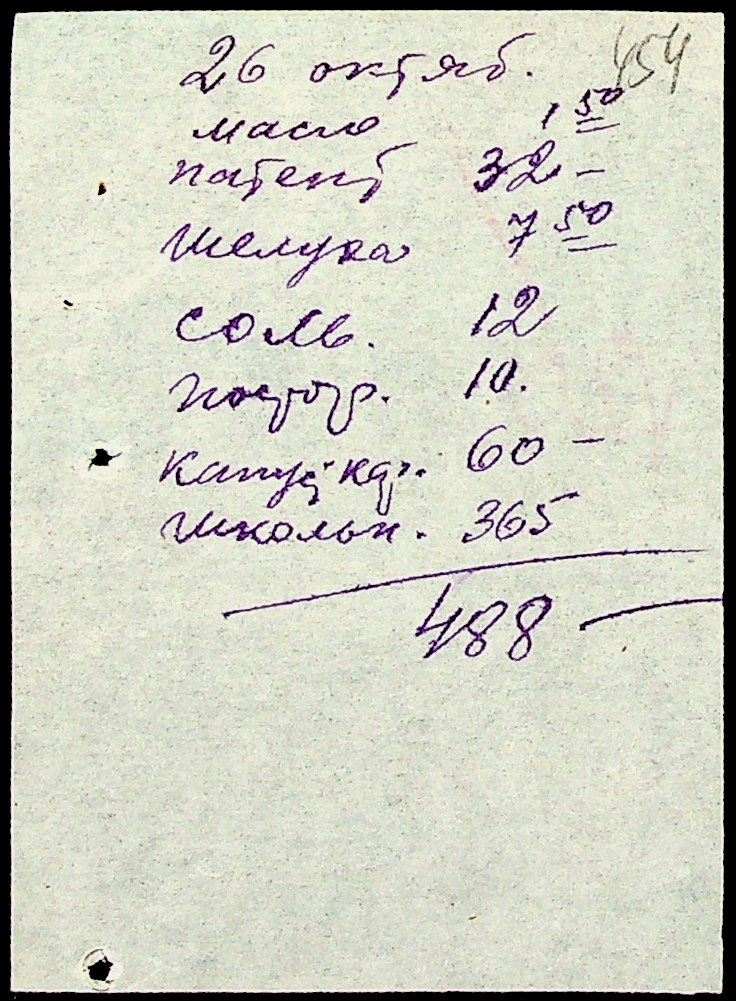 454
26 октяб.
масло 1 50
патент 32 –
шелуха 7 50
соль. 12
10.
капуст. 60 –
школьн. 365
488 –